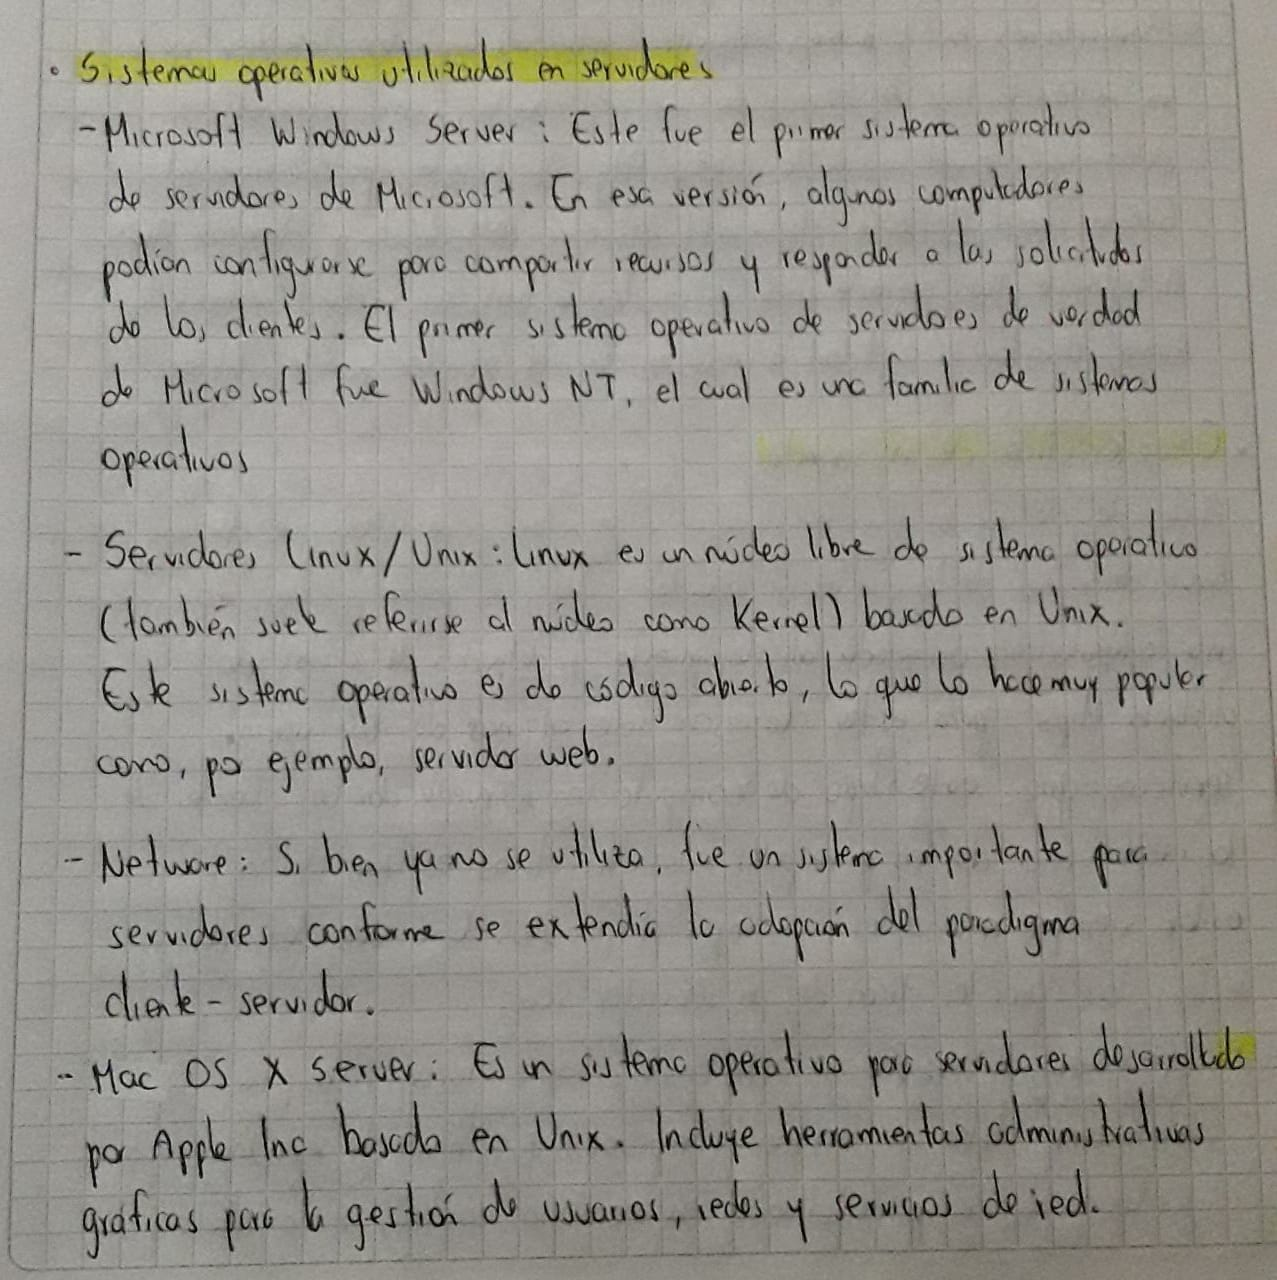 • Sistemas operativos utilizados en servidores
- Microsoft Windows Server : Este fue el primer sistema operativo
de servidores de Microsoft. En esa versión, algunos computadores
podían configurarse para compartir recursos y responder a las solicitudes
de los clientes. El primer sistema operativo de servidores de verdad
de Microsoft fue Windows NT, el cual es una familia de sistemas
operativos
- Servidores Linux/Unix : Linux es un núcleo libre de sistema operativo
(también suele referirse al núcleo como Kernel) basado en Unix.
Este sistema operativo es de código abierto, lo que lo hace muy popular
como, por ejemplo, servidor web.
- Netware : Si bien ya no se utiliza, fue un sistema importante para
servidores conforme se extendía la adopción del paradigma
cliente - servidor.
- Mac OS X Server : Es un sistema operativo para servidores desarrollado
por Apple Inc basado en Unix. Incluye herramientas administrativas
gráficas para la gestión de usuarios, redes y servicios de red.